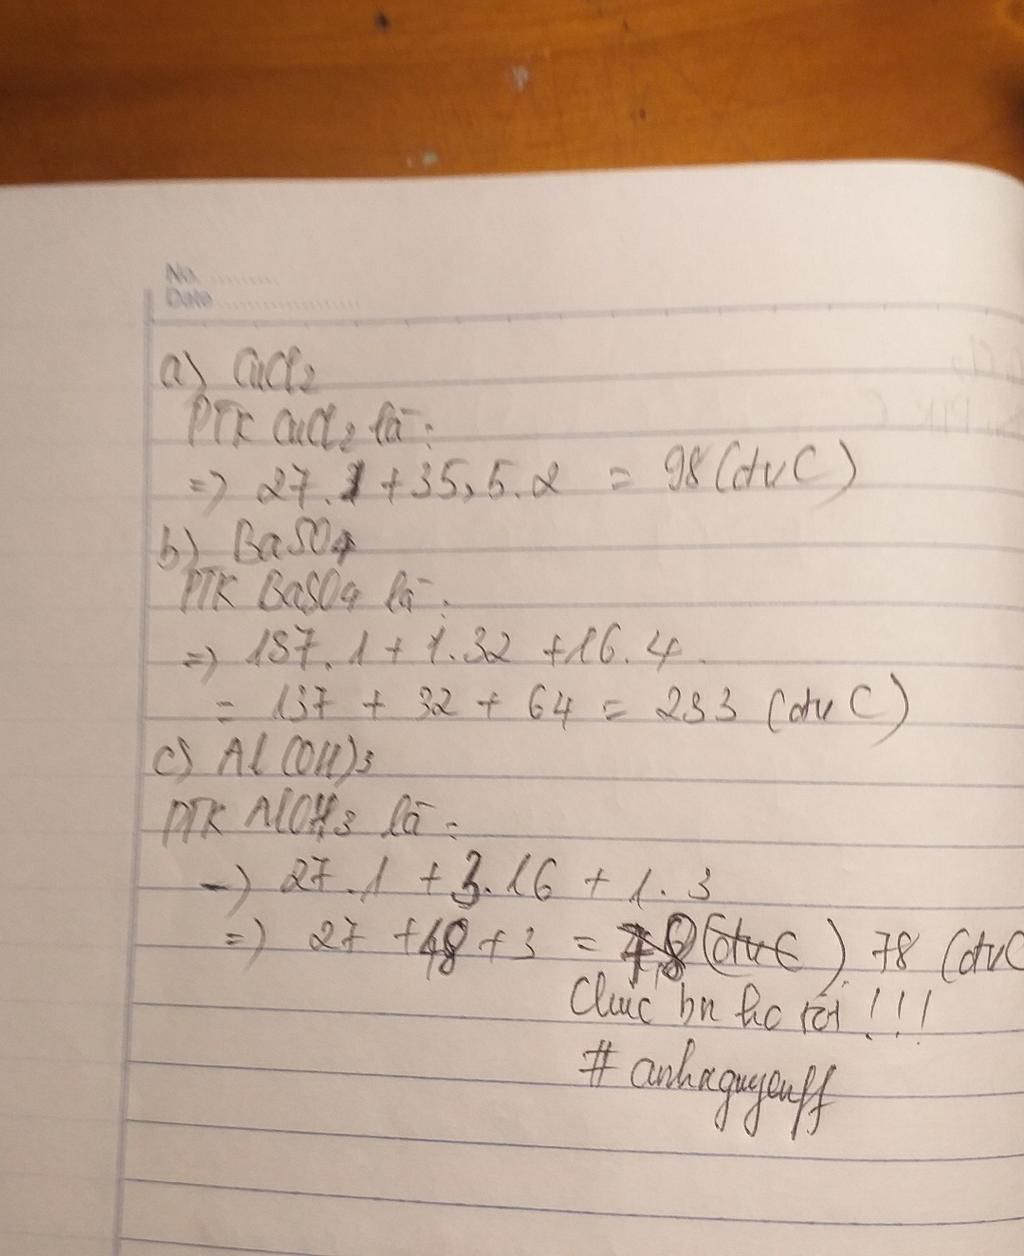 No.
Date
a) CuCl2
PTK CuCl2 là:
=> 27.1 + 35,5.2 = 98 (đvC)
b) BaSO4
PTK BaSO4 là:
=> 137.1 + 1.32 + 16.4
= 137 + 32 + 64 = 233 (đvC)
c) Al(OH)3
PTK AlOH3 là:
-) 27.1 + 3.16 + 1.3
=) 27 + 48 + 3 = 78 (đvC) 78 (đvC
Chuc bn hc tôt !!!
# anhnguyenff